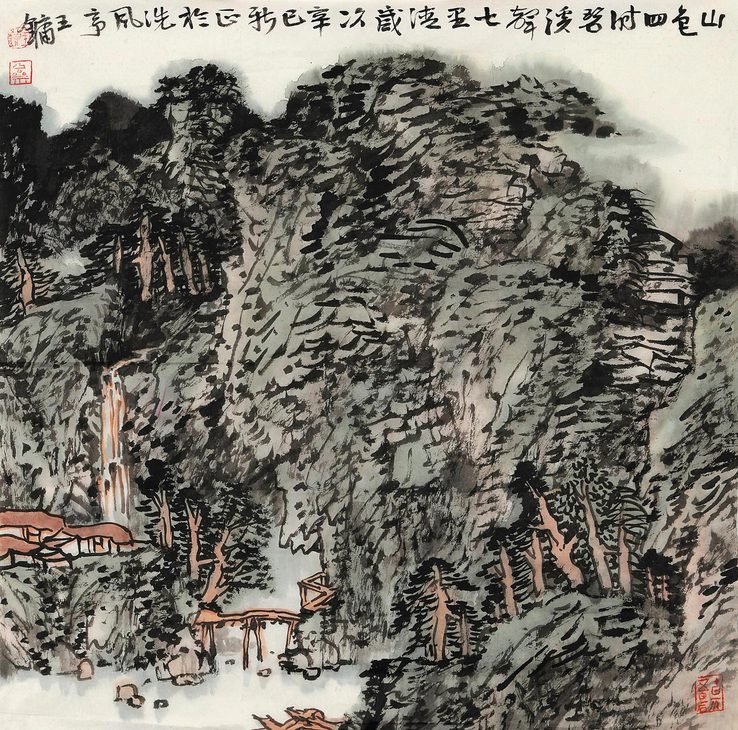 山色四时碧溪聲七里清歲次辛巳新正於洗风亭王鏞